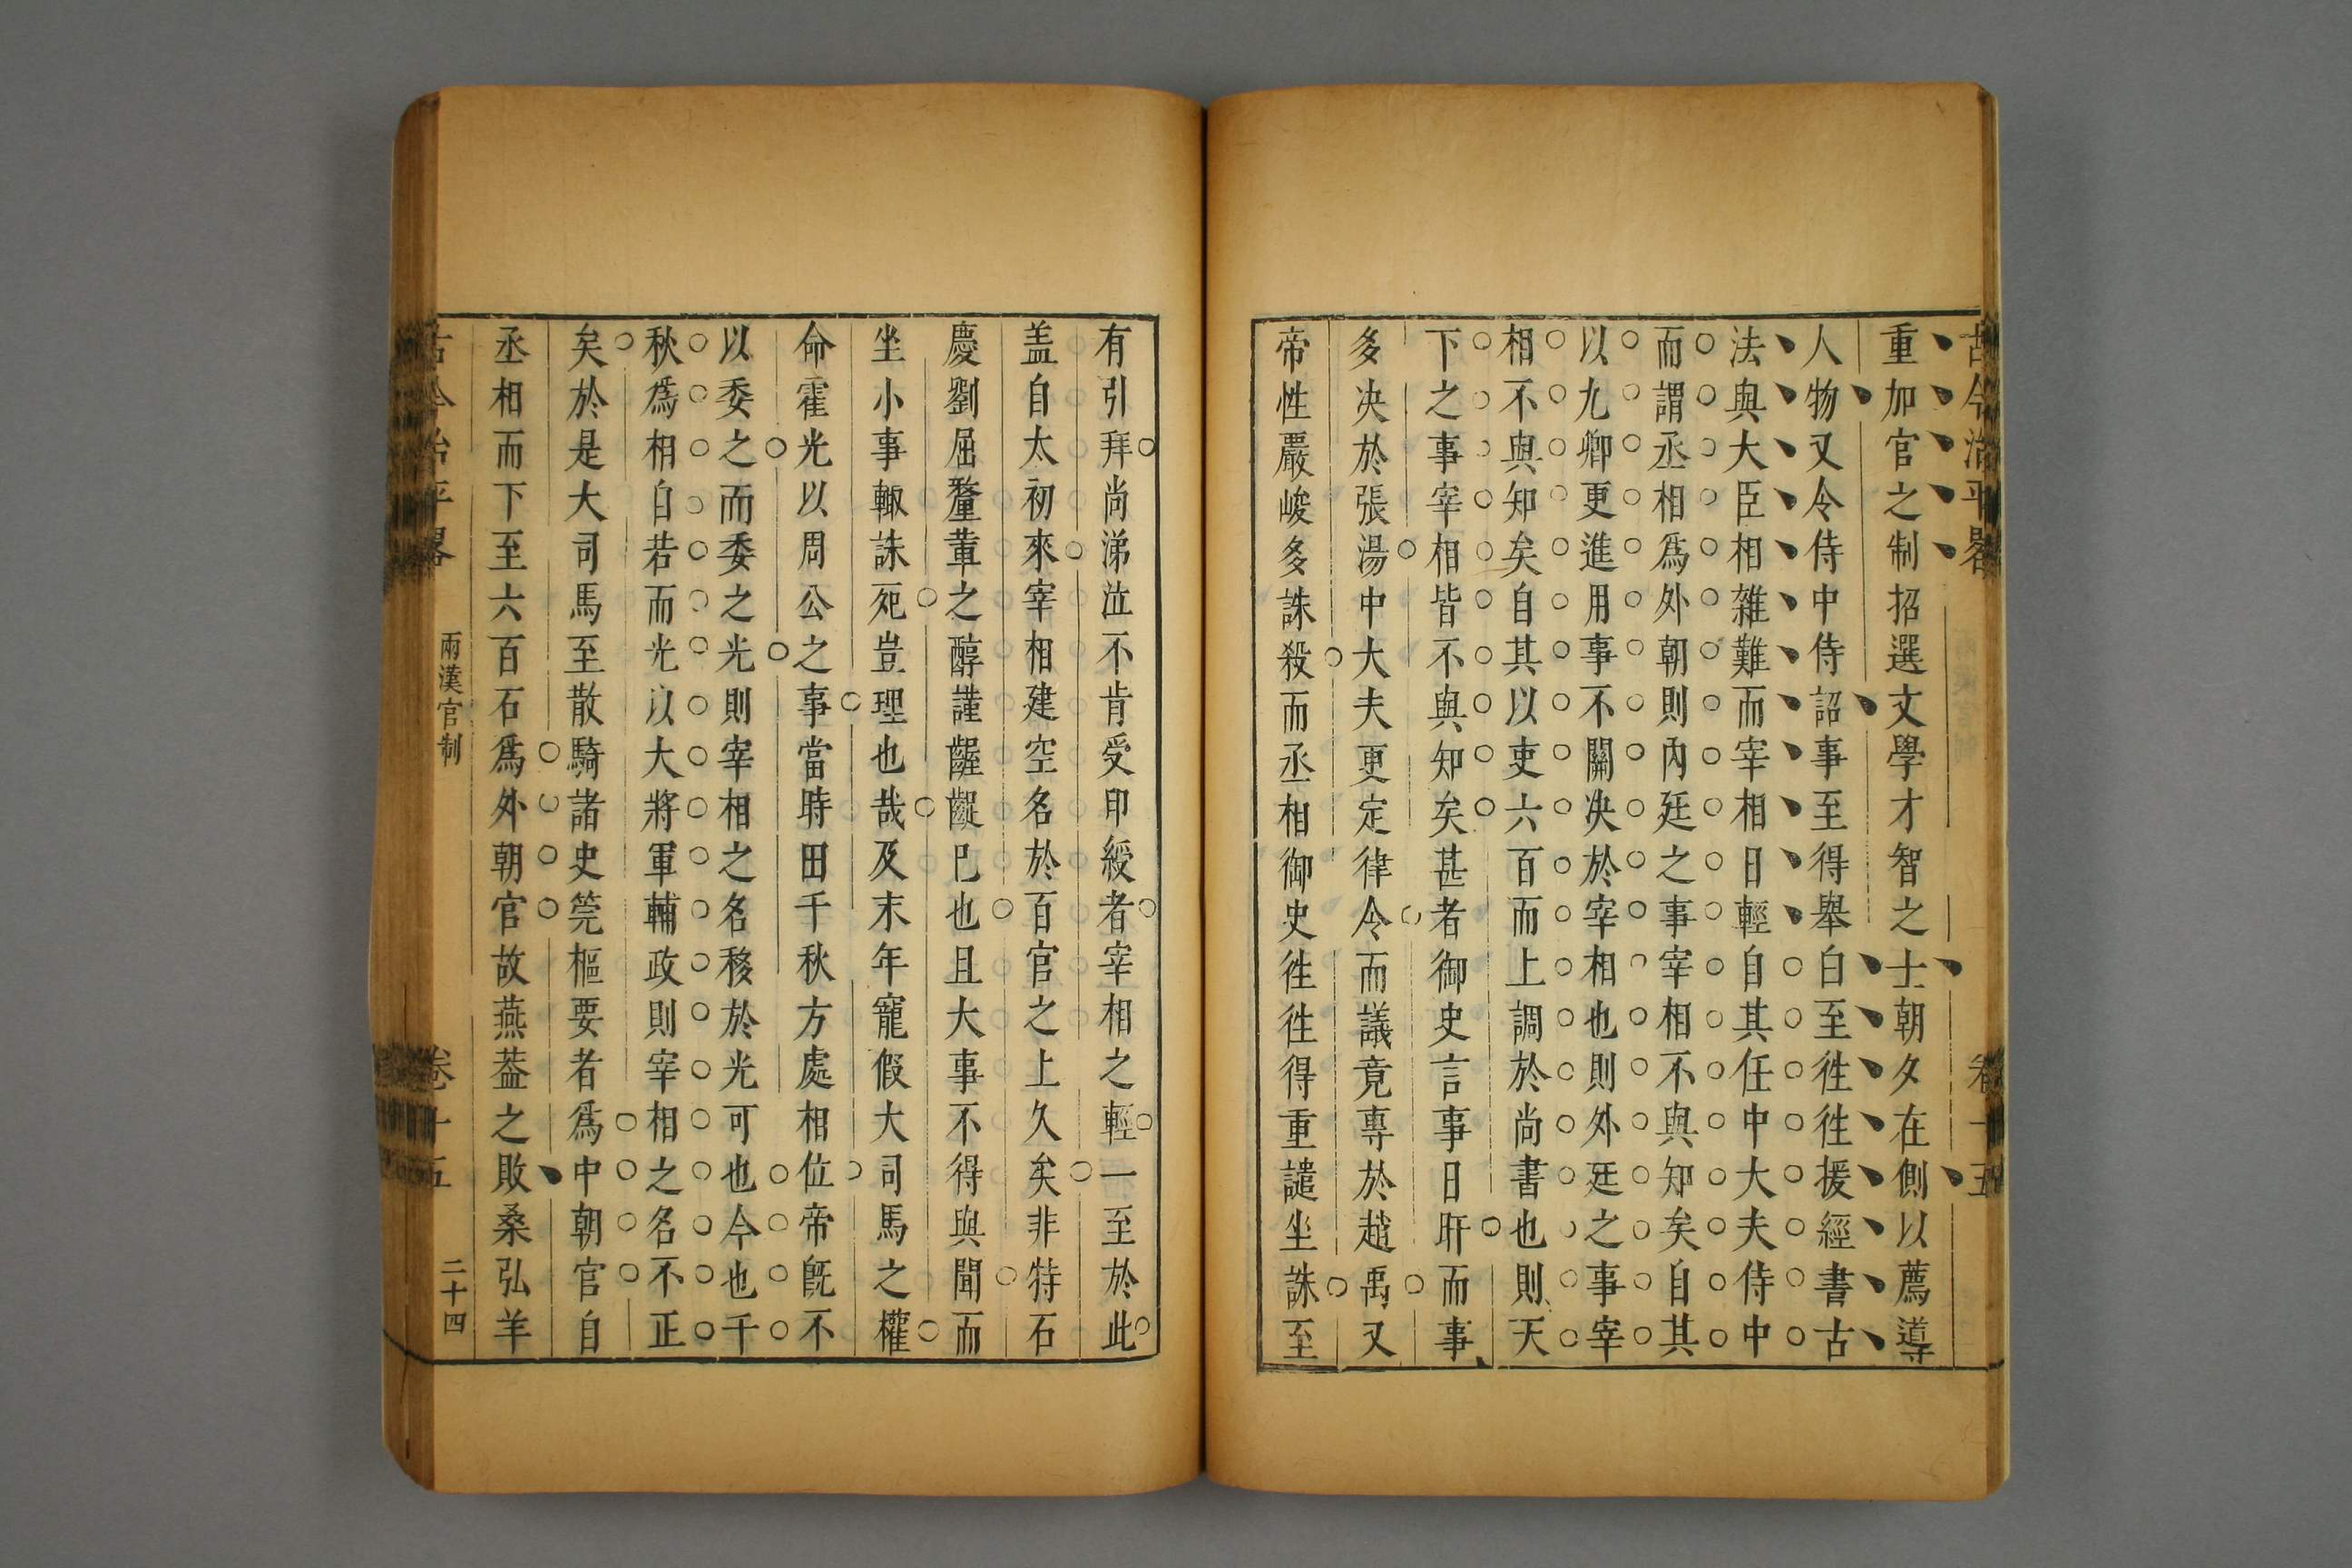 古今治平畧 卷十五
重加官之制招選文學才智之士朝夕在側以薦導
人物又令侍中侍詔事至得舉白至徃徃援經書古
法與大臣相雜難而宰相日輕自其任中大夫侍中
而謂丞相爲外朝則內廷之事宰相不與知矣自其
以九卿更進用事不關决於宰相也則外廷之事宰
相不與知矣自其以吏六百而上調於尚書也則天
下之事宰相皆不與知矣甚者御史言事日旰而事
多决於張湯中大夫更定律令而議竟專於趙禹又
帝性嚴峻多誅殺而丞相御史徃徃得重譴坐誅至
有引拜尚涕泣不肯受印綬者宰相之輕一至於此
盖自太初來宰相建空名於百官之上久矣非特石
慶劉屈氂軰之醇謹齷齪已也且大事不得與聞而
坐小事輙誅死豈理也哉及末年寵假大司馬之權
命霍光以周公之事當時田千秋方處相位帝旣不
以委之而委之光則宰相之名移於光可也今也千
秋爲相自若而光以大將軍輔政則宰相之名不正
矣於是大司馬至散騎諸史筦樞要者爲中朝官自
丞相而下至六百石爲外朝官故燕葢之敗桑弘羊
古今治平畧 兩漢官制 卷十五 二十四